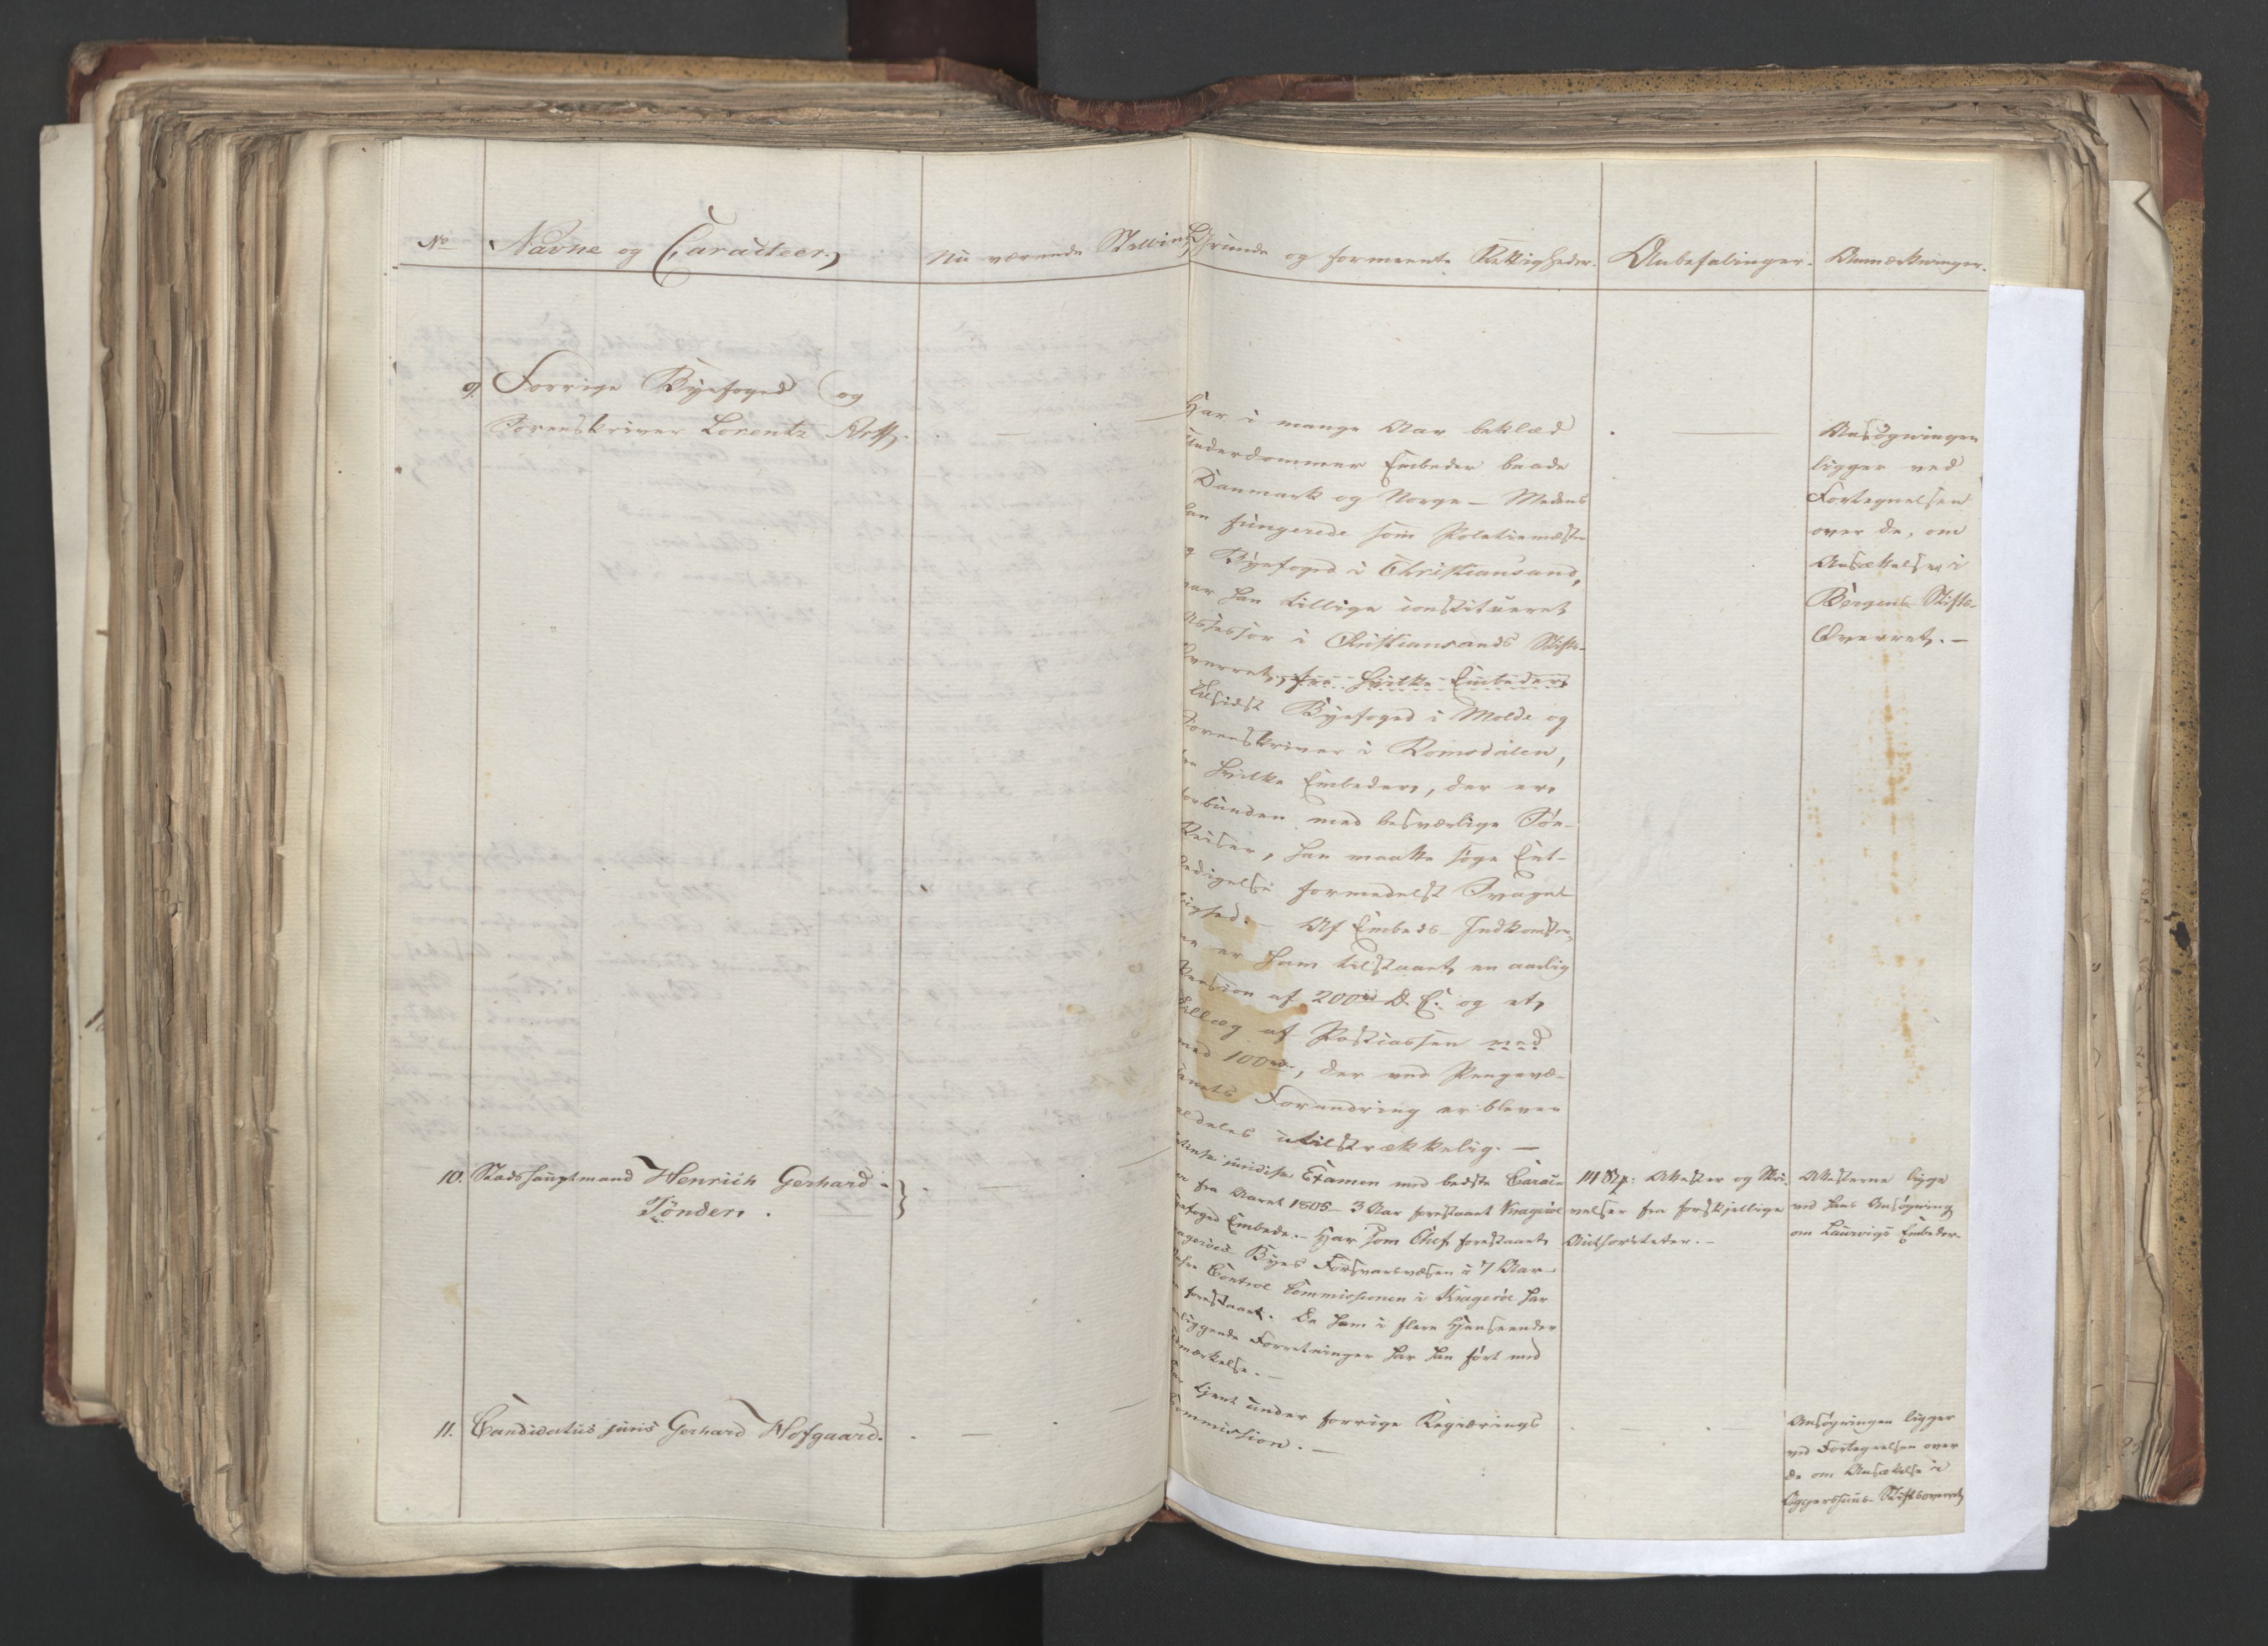 No
Navne og Caracteer,
Nu værende Stilling,
Grunde og formeente Rettigheder.
Anbefalinger.
Anmærkninger.
9. Forrige Byefoged og
Sorenskriver Lorentz
Har i mange Aar beklæd
Underdommer Embeder baade
Danmark og Norge – Medens
han fungerede som Politiemester
og Byefoged i Christiansand,
var han tillige constitueret
Assessor i Christiansands Stifts-
Overret, fra hvilke Embeder
tilsidst Byefoged i Molde og
Sorenskriver i Romsdalen,
fra hvilke Embeder, der ere
forbunden med besværlige Søe-
Reiser, han maatte søge Ent-
ledigelse formedelst Svage-
lighed. – Af Embeds-Indkomster-
ne er ham tilstaaet en aarlig
Pension af 200 rd D. C. og et
Tillæg af Postcassen med
med 100 rd, der ved Pengevæ-
senets Forandring er bleven
aldeles utilstrækkelig. –
Ansøgningen
ligger ved
Fortegnelsen
over de, om
Ansættelse i
Bergens Stifts-
Overret. –
10. Stadshauptmand Henrich Gerhard
Tönder.
juridiske Examen med bedste Carac-
fra Aaret 1805 – 3 Aar forestaaet Krageröe
Byefoged Embede. – Har som Chef forestaaet
Krageröes Byes Forsvarsvæsen i 7 Aar –
Control Commissionen i Krageröe har
forestaaet. De ham i flere Henseender
paaliggende Forretninger har han ført med
Udmærkelse. –
14 Stk: Attester og Skri-
velser fra forskjellige
Authoriteter. –
Attesterne ligge
ved hans Ansøgning
om Laurvigs Embeder.
11. Candidatus juris Gerhard Hofgaard.
Har tjent under forrige Regierings
Commission. –
Ansøgningen ligger
ved Fortegnelsen over
de om Ansættelse i
Aggershuus-Stiftsoverret